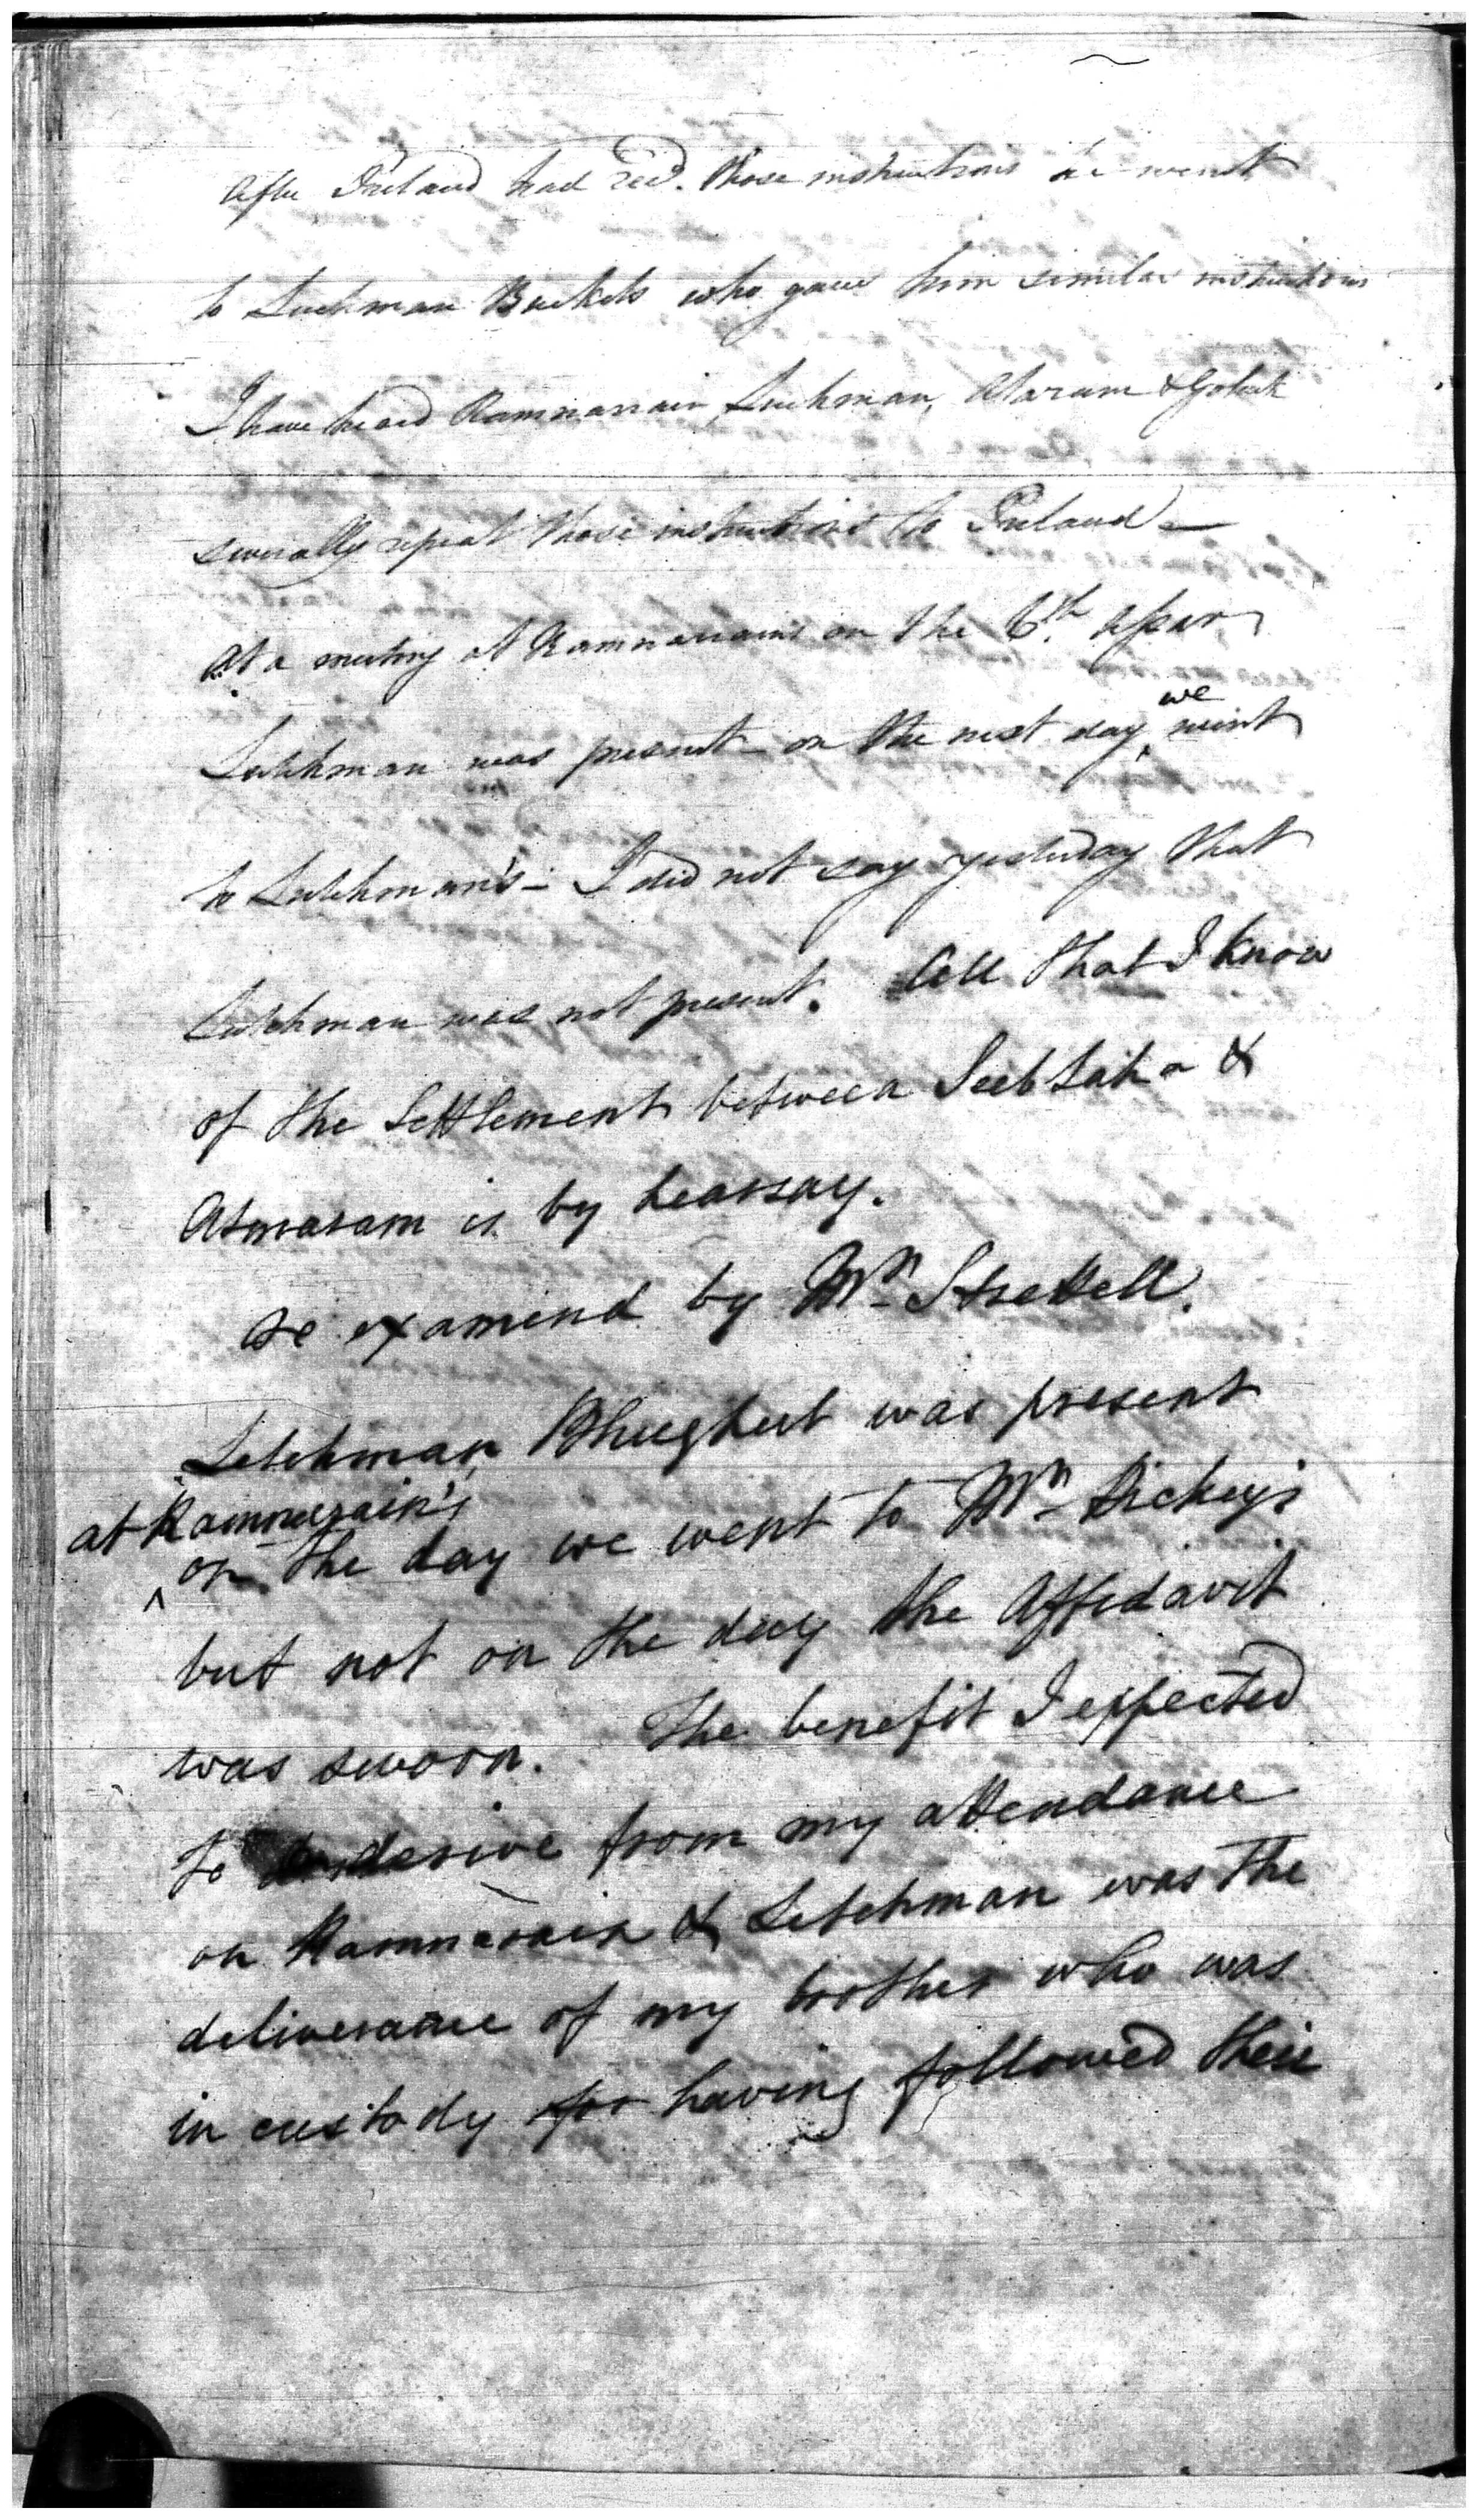 After Preland had rec'd. those instructions he went
to Luchman who gave him similar instructions
I have heard Ramnarrain, Luchman, & Goluck
severally repeat those instructions to Preland —
At a meeting at Ramnarrains on the 6th. Assar
Lutchman was present on the next day we went
to Lutchman's – I did not say yesterday that
Lutchman was not present. All that I know
of the Settlement between &
Atmaram is by hearsay.
Re examind by Mr. Strettell.
Letchman Bhughut was present
at Ramnerain's
on the day we went to Mr. Dickey's
but not on the day the Affedavit
was sworn. The benefit I expected
to derive from my attendance
on Ramnarain & Letchman was the
deliverance of my brother who was
in custody for having followed their